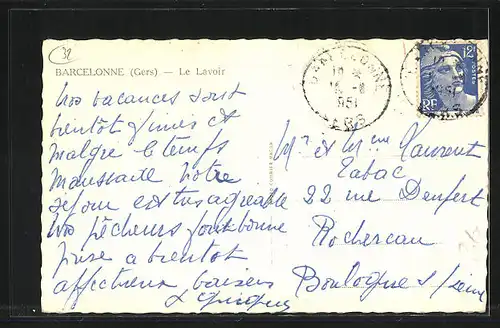 32
BARCELONNE (Gers) - Le Lavoir
BARCELONNE
1951
GERS
12F
POSTES
RF
Nos vacances sont
bientôt finies et
malgré le temps
maussade notre
séjour est très agréable
Nos pêcheurs font bonne
prise à bientôt
affectueux baisers
Mr et Mme Laurent
Tabac
22 rue Denfert
Rochereau
Boulogne s/ Seine